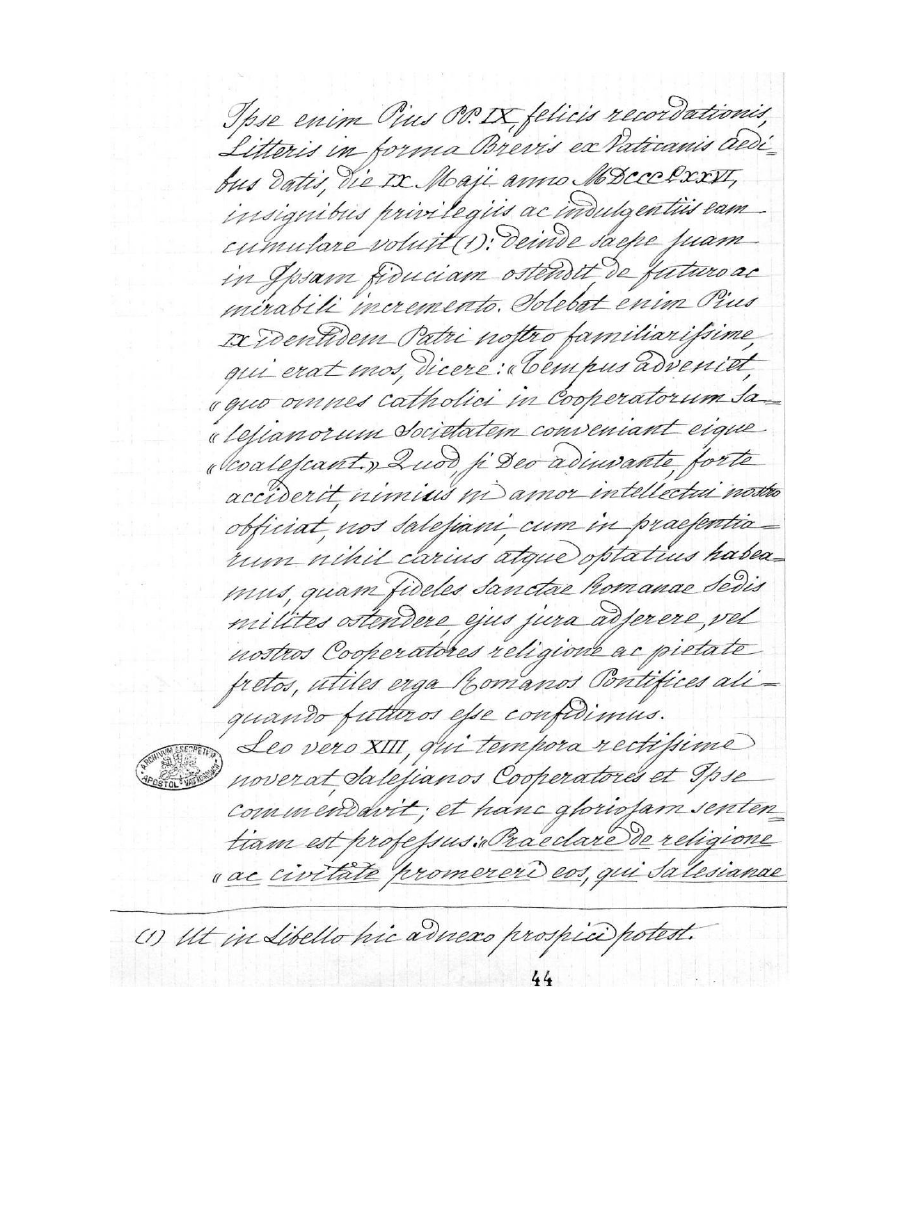 Ipse enim Pius PP. IX, felicis recordationis,
Litteris in forma Brevis ex Vaticanis Aedi=
bus datis, die IX Maji anno MDCCCLXXVI,
insignibus privilegiis ac indulgentiis eam
cumulare voluit (1): deinde saepe suam
in Ipsam fiduciam ostendit, de futuro ac
mirabili incremento. Solebat enim Pius
IX identidem Patri noſtro familiariſsime,
qui erat mos, dicere: „Tempus adveniet,
„ quo omnes catholici in Cooperatorum Sa=
„ leſianorum Societatem conveniant eique
„ coaleſcant.„ Quod, ſi Deo adiuvante, forte
acciderit, nimius ni amor intellectui nostro
officiat, nos Saleſiani, cum in praeſentia=
rum nihil carius atque optatius habea=
mus, quam fideles Sanctae Romanae Sedis
milites ostendere, ejus jura adſerere, vel
nostros Cooperatores religione ac pietate
fretos, utiles erga Romanos Pontifices ali=
quando futuros eſse confidimus.
Leo vero XIII, qui tempora rectiſsime
noverat, Saleſianos Cooperatores et Ipse
commendavit; et hanc glorioſam senten=
tiam est profeſsus: „Praeclare de religione
„ ac civitate promereri eos, qui Salesianae
(1) Ut in Libello hic adnexo prospici potest.
44
ARCHIVUM SECRETUM
APOSTOL. VATICANUM